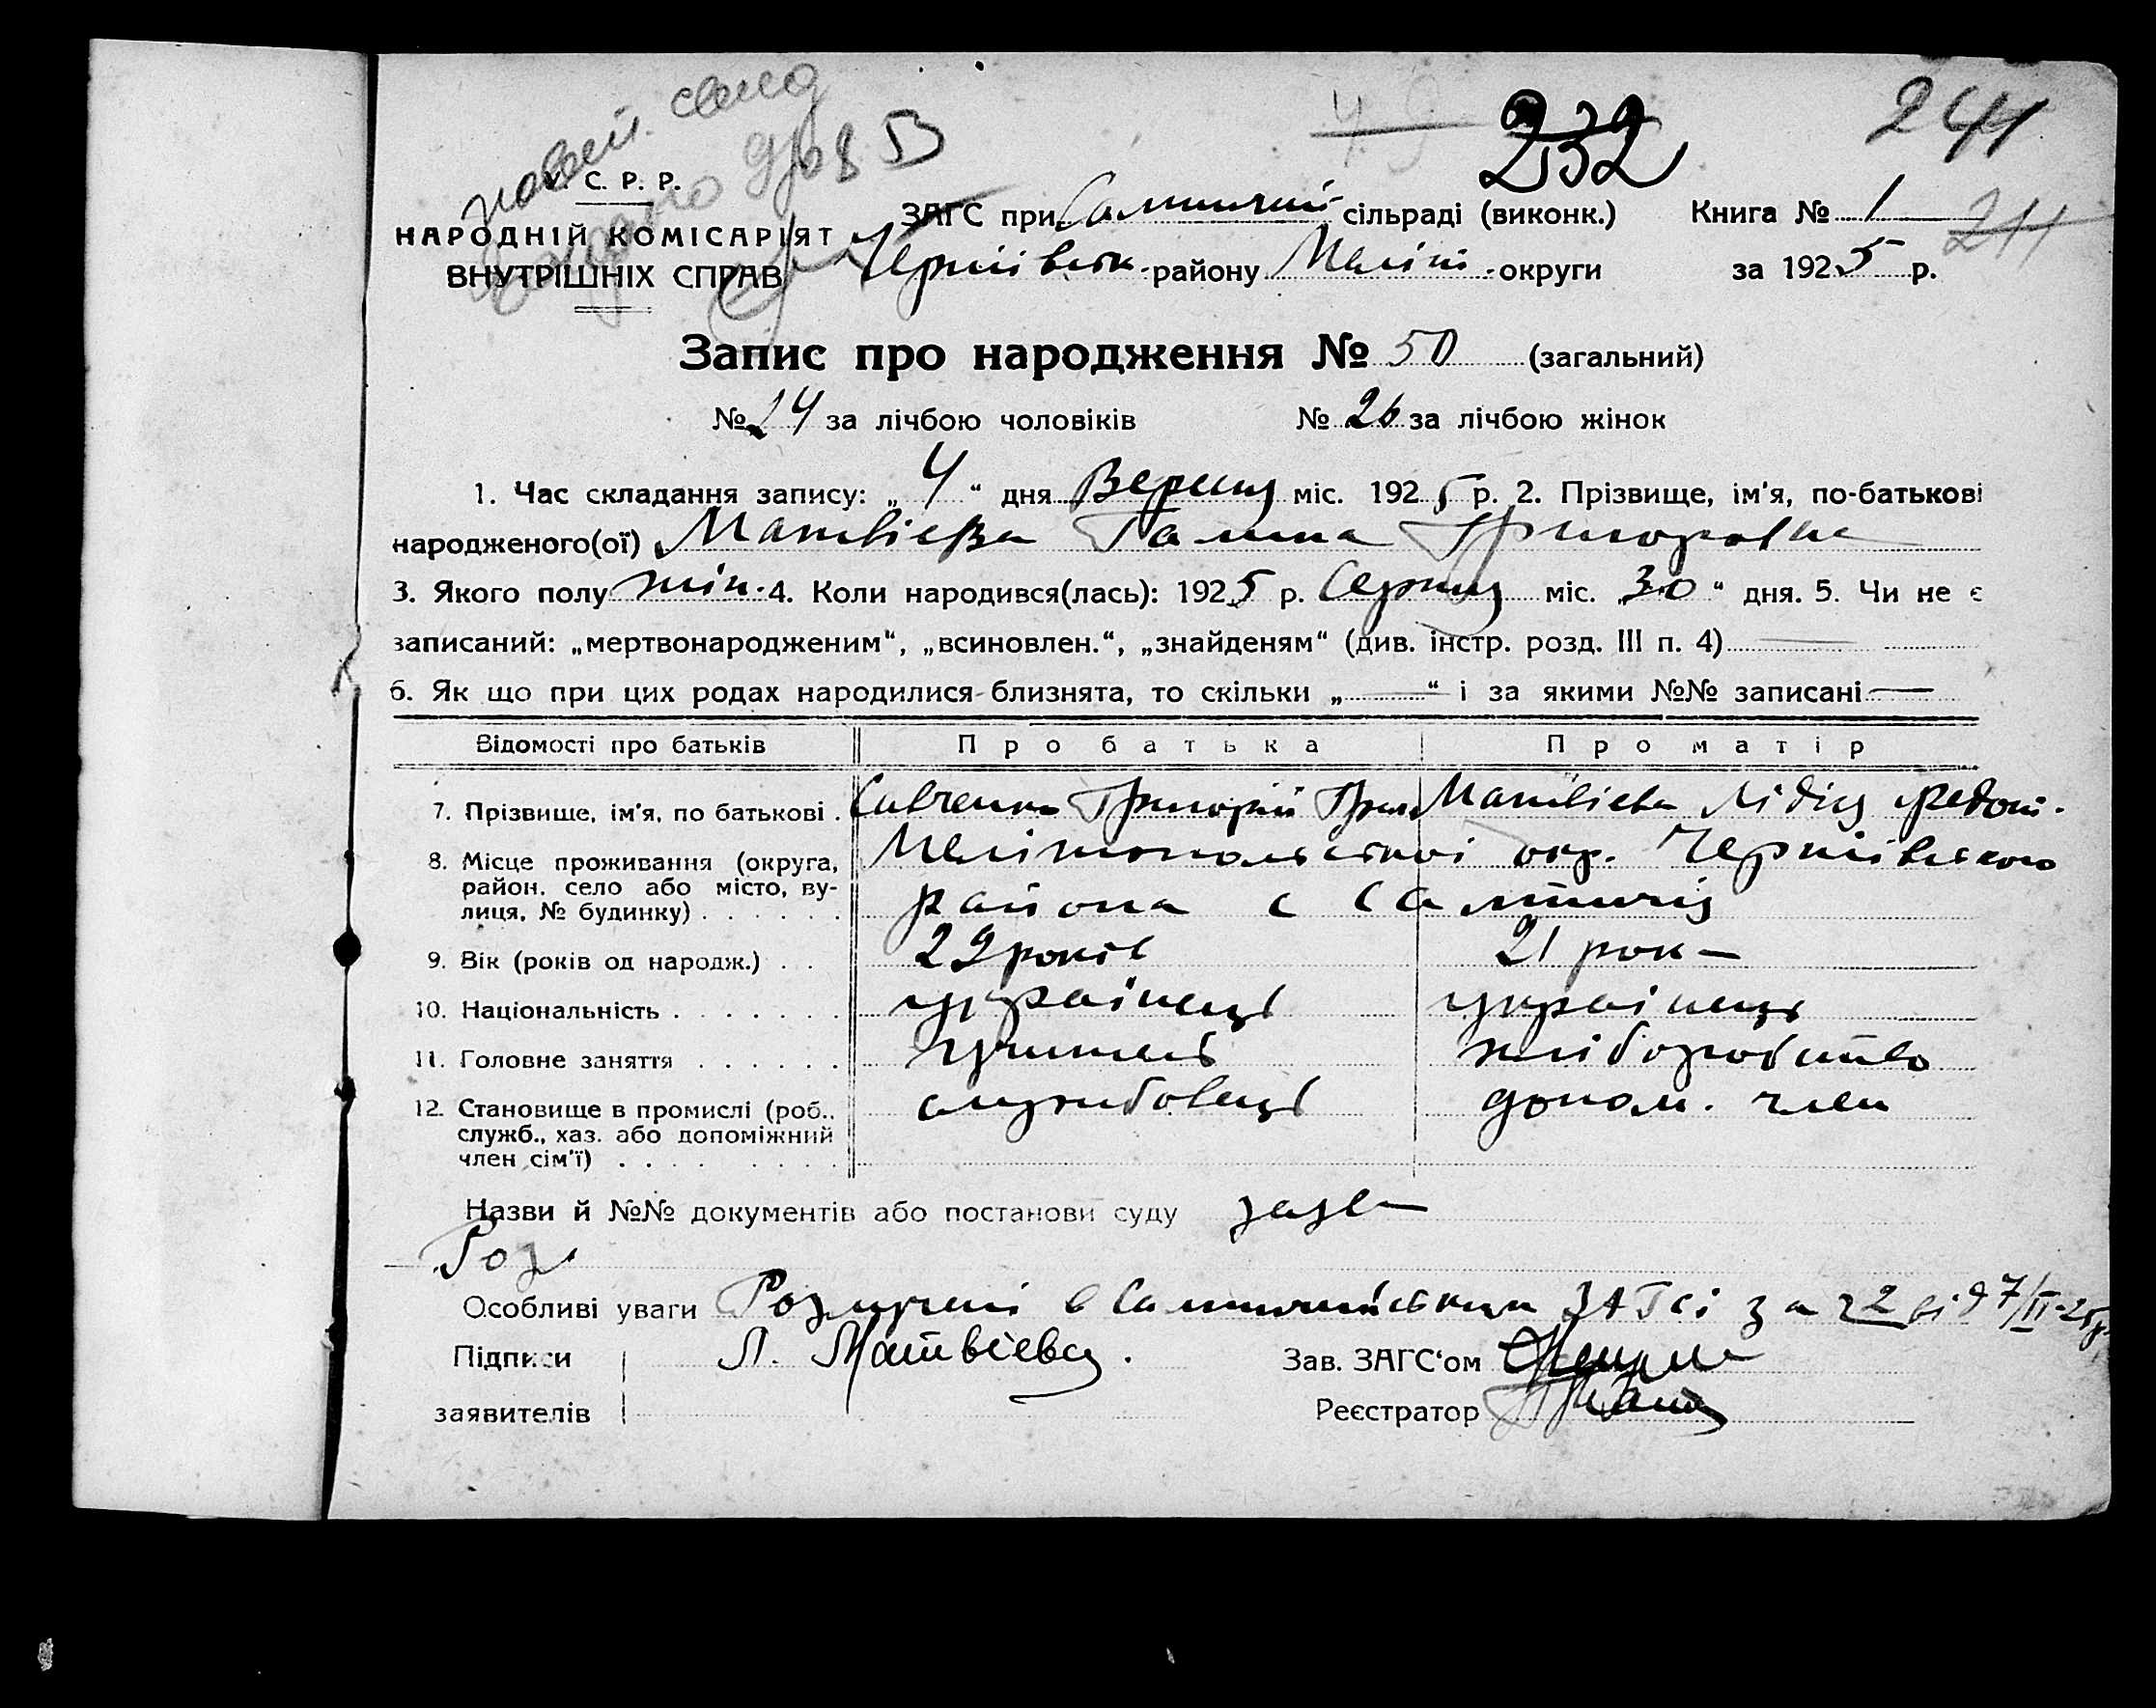 232
244
У. С. Р. Р.
ЗАГС при Салтичий сільраді (виконк.) Книга № 1
211
НАРОДНІЙ КОМІСАРІЯТ
ВНУТРІШНІХ СПРАВ
Чернівськ. району Меліт. округи за 1925 р.
Запис про народження № 50 (загальний)
№ 24 за лічбою чоловіків № 26 за лічбою жінок
1. Час склaдання запису: „4“ дня Вересня міс. 1925 р. 2. Прізвище, ім'я, по-батькові
народженого(ої) Матвієва Галина Григоровна
3. Якого полу жін. 4. Коли народився(лась): 1925 р. Серпня міс. „30“ дня. 5. Чи не є
записаний: „мертвонародженим“, „всиновлен.“, „знайденям“ (див. інстр. розд. III п. 4)
6. Як що при цих родах народилися близнята, то скільки „—“ і за якими №№ записані —
Відомості про батьків Про батька Про матір
7. Прізвище, ім'я, по батькові . Савченко Григорій Григ Матвієва Лідія Федот.
8. Місце проживання (округа, район, село або місто, вулиця, № будинку) . . . . . . Мелітопольської окр. Чернівського
района с Салтичія
9. Вік (років од народж.) . . 22 років 21 рок —
10. Національність . . . . . . . українець українець
11. Головне заняття . . . . . . учитель хліборобство
12. Становище в промислі (роб., служб., хаз. або допоміжний член сім'ї) . . . . . . . . службовець допом. член
Назви й №№ документів або постанови суду заява
Роз
Особливі уваги Розлучені в Салтичийським ЗАГСі за ч 2 від 7/II-25р
Підписи Л. Матвієва. Зав. ЗАГС'ом
заявителів Реєстратор